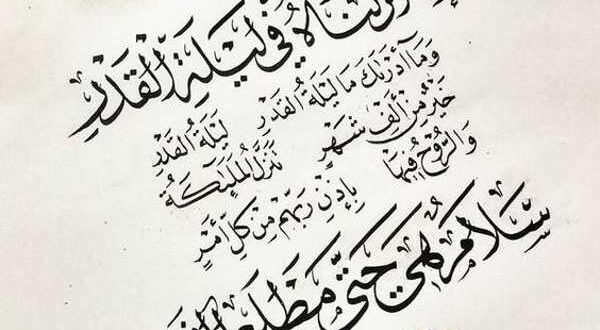 أنزلناه في لَيْلَةِ الْقَدْرِ
وَمَا أَدْرَىكَ مَا لَيْلَةُ الْقَدْرِ
لَيْلَةُ الْقَدْرِ
خَيْرٌ مِنْ أَلْفِ شَهْرٍ
تَنَزَّلُ الْمَلَئِكَةُ
وَالرُّوحُ فِيهَا
بِإِذْنِ رَبِّهِمْ مِنْ كُلِّ أَمْرٍ
سَلَامٌ هِيَ حَتَّى مَطْلَعِ